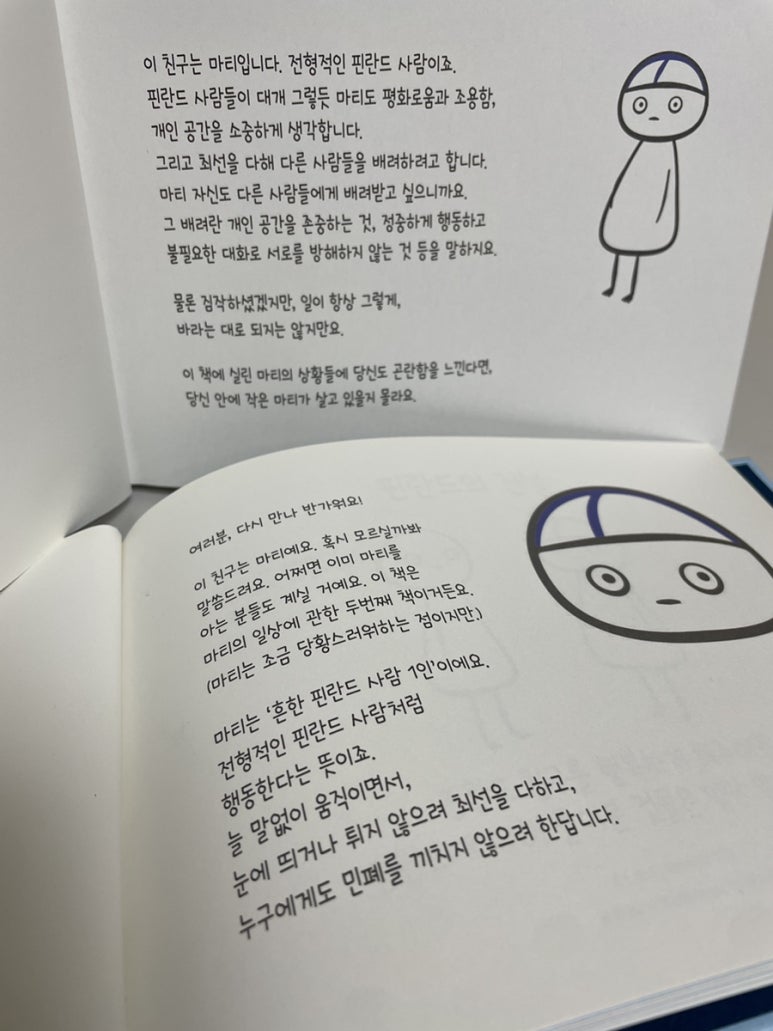 이 친구는 마티입니다. 전형적인 핀란드 사람이죠.
핀란드 사람들이 대개 그렇듯 마티도 평화로움과 조용함,
개인 공간을 소중하게 생각합니다.
그리고 최선을 다해 다른 사람들을 배려하려고 합니다.
마티 자신도 다른 사람들에게 배려받고 싶으니까요.
그 배려란 개인 공간을 존중하는 것, 정중하게 행동하고
불필요한 대화로 서로를 방해하지 않는 것 등을 말하지요.
물론 짐작하셨겠지만, 일이 항상 그렇게,
바라는 대로 되지는 않지만요.
이 책에 실린 마티의 상황들에 당신도 곤란함을 느낀다면,
당신 안에 작은 마티가 살고 있을지 몰라요.
여러분, 다시 만나 반가워요!
이 친구는 마티예요. 혹시 모르실까봐
말씀드려요. 어쩌면 이미 마티를
아는 분들도 계실 거예요. 이 책은
마티의 일상에 관한 두번째 책이거든요.
(마티는 조금 당황스러워하는 점이지만.)
마티는 '흔한 핀란드 사람 1인'이에요.
전형적인 핀란드 사람처럼
행동한다는 뜻이죠.
늘 말없이 움직이면서,
눈에 띄거나 튀지 않으려 최선을 다하고,
누구에게도 민폐를 끼치지 않으려 한답니다.